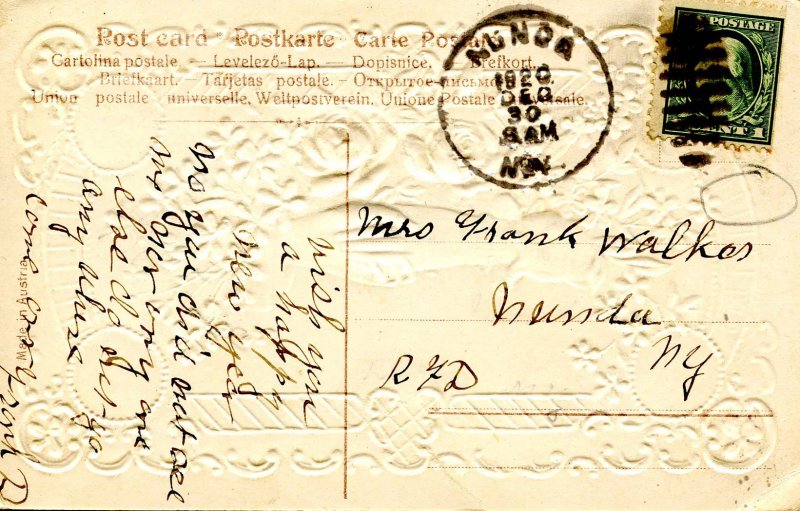 Post card - Postkarte - Carte Postale
Cartolina postale. — Levelező-Lap. — Dopisnice. — Brefkort.
Briefkaart. — Tarjetas postale. — Открытое письмо
Union postale universelle, Weltpostverein, Unione Postale
NUNDA
1920
DEC
30
8 AM
N.Y.
POSTAGE
CENT 1
Mrs Frank Walker
Nunda
R F D
NY
wish you
a happy
new year
no you did not owe
me over every one
else do not go
any where
come over
Frank D
Made in Austria